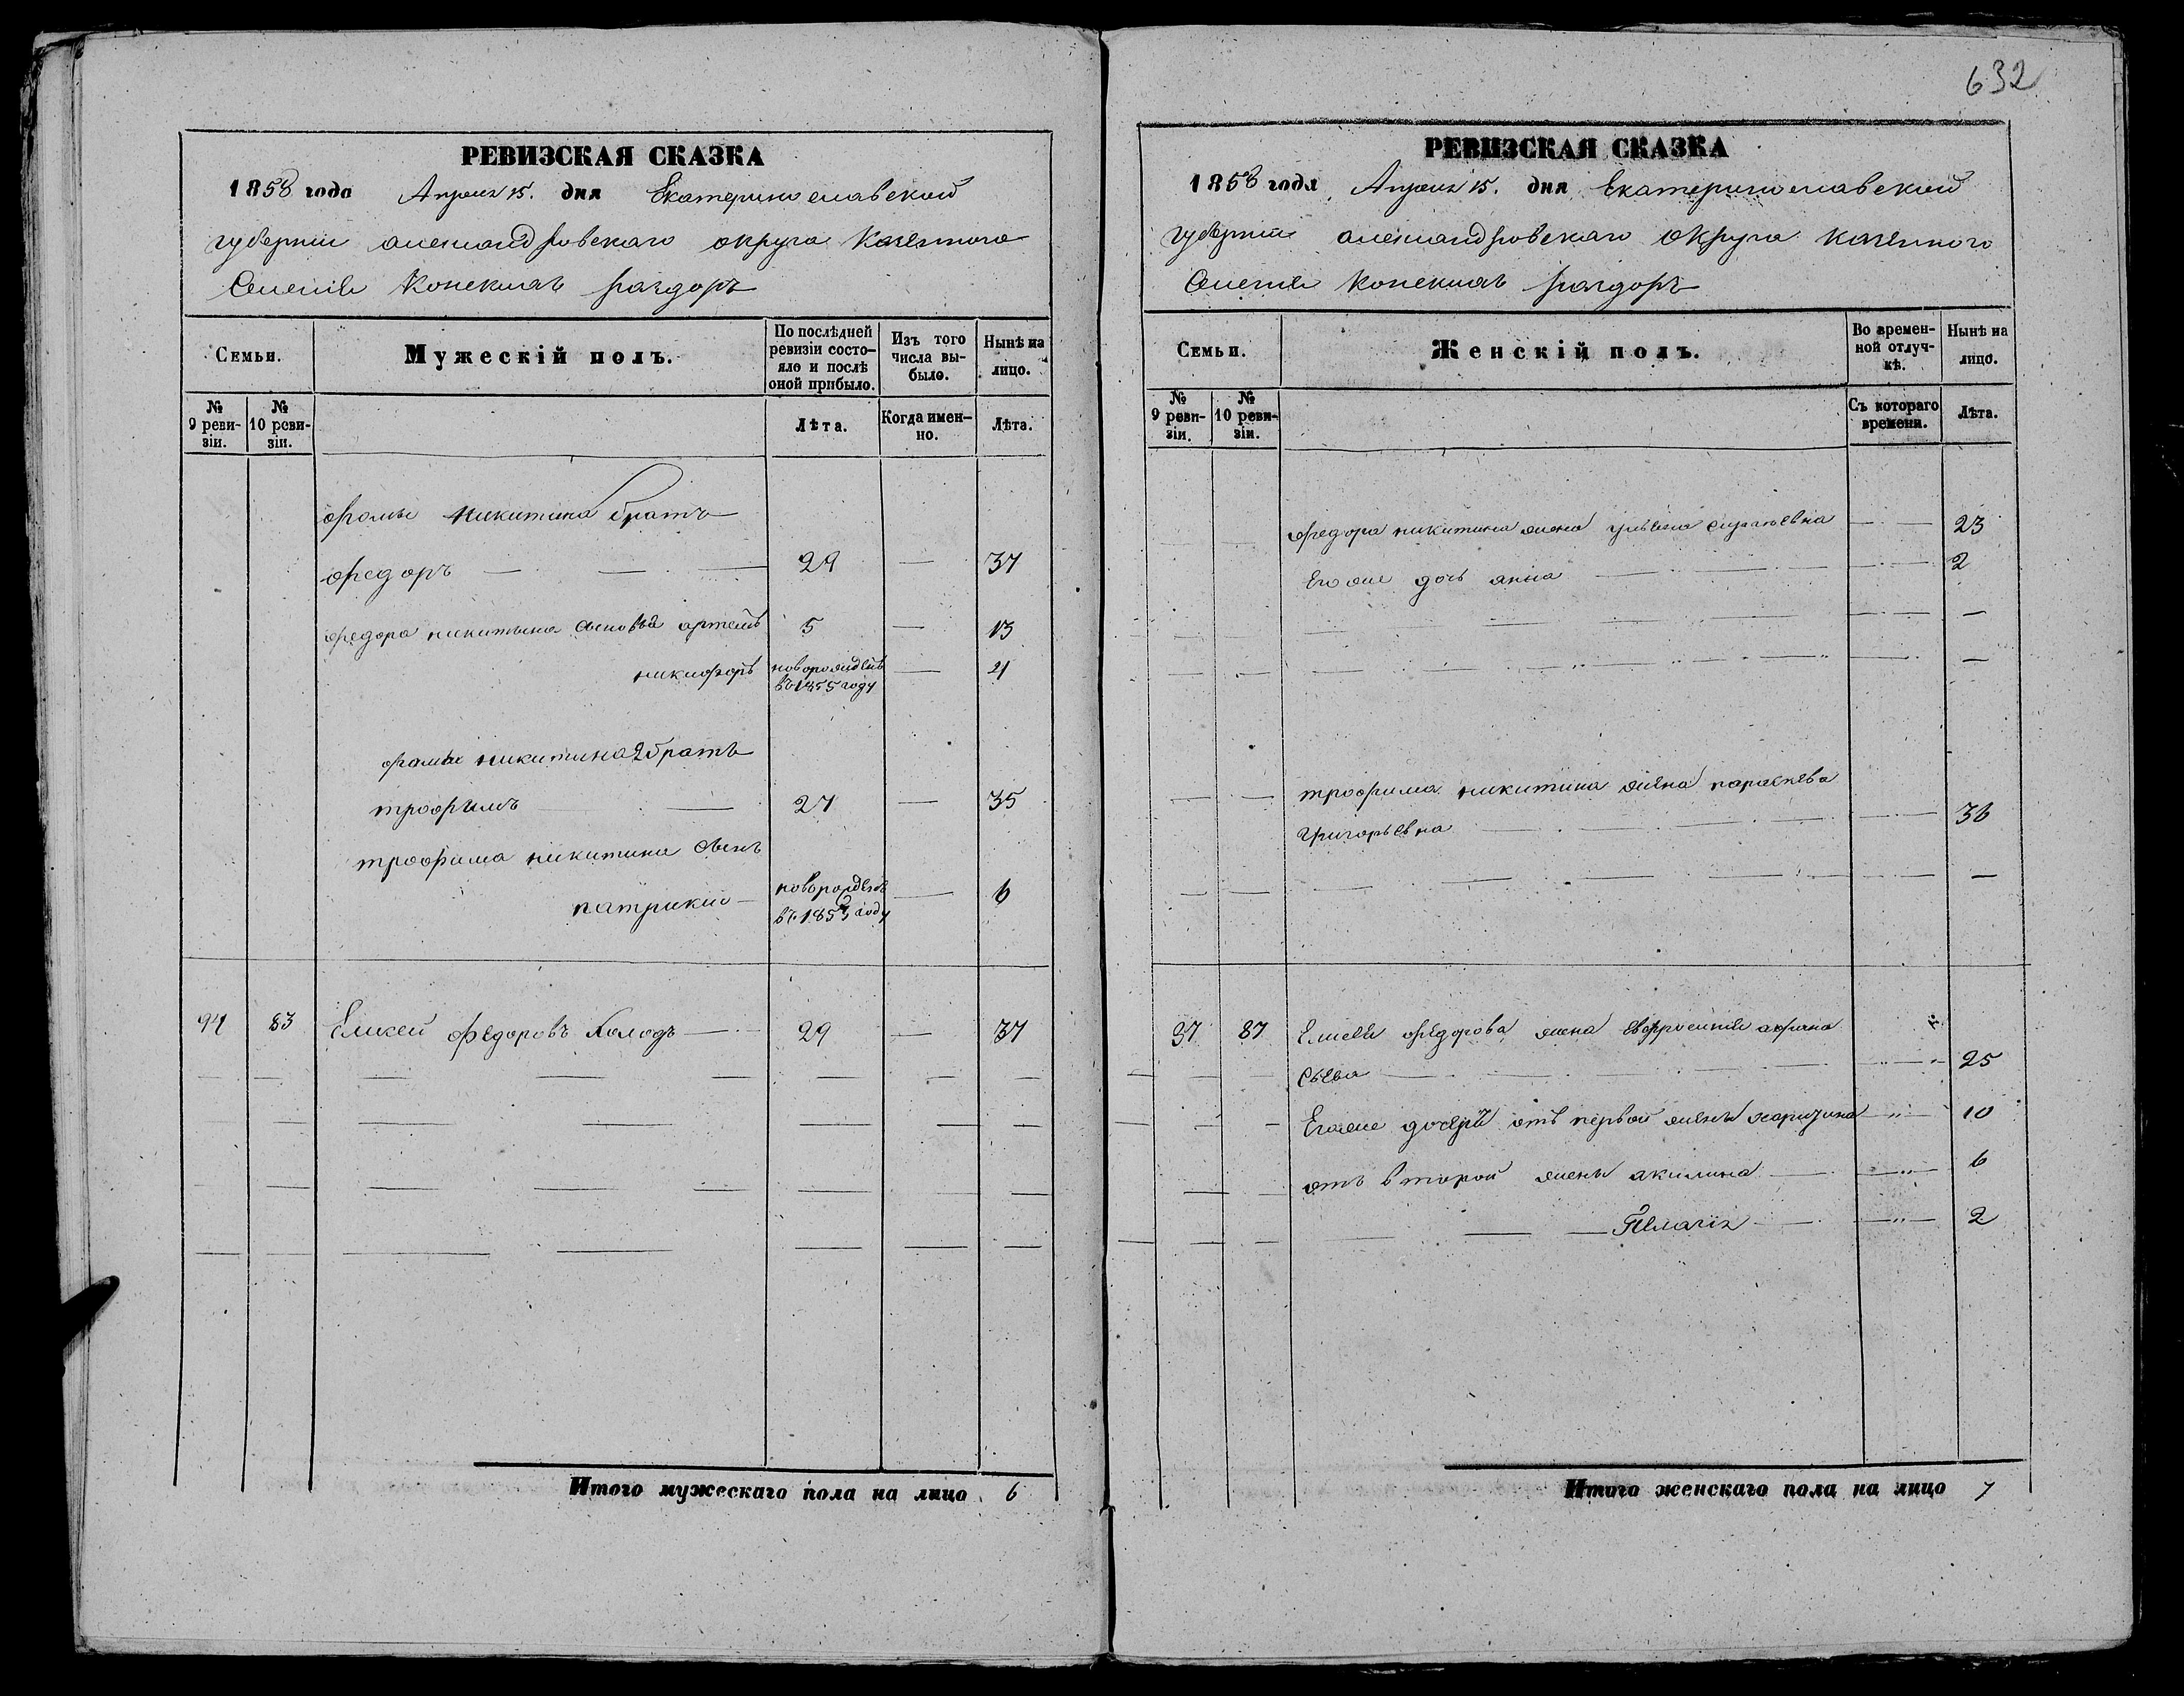 632
РЕВИЗСКАЯ СКАЗКА
1858 года Апреля 15. дня Екатеринославской
губернии александровскаго округа казенного
Селения Конскихъ раздоръ
Семьи.
Мужескій полъ.
По послѣдней ревизіи состояло и послѣ оной прибыло.
Изъ того числа выбыло.
Нынѣ на лицо.
№ 9 ревизіи.
№ 10 ревизіи.
Лѣта.
Когда именно.
Лѣта.
фомы никитина братъ
федоръ 29 — 37
федора никитина сыновья артемъ 5 — 13
никифоръ новорожденъ въ 1855 году — 4
фомы никитина 2 братъ
трофимъ 27 — 35
трофима никитина сынъ
патрикий новорожденъ въ 1853 году — 6
94 83 Елисей федоровъ Холодъ 29 — 37
Итого мужескаго пола на лицо 6
РЕВИЗСКАЯ СКАЗКА
1858 года Апреля 15. дня Екатеринославской
губернии александровскаго округа казенного
Селения Конскихъ раздоръ
Семьи.
Женскій полъ.
Во временной отлучкѣ.
Нынѣ на лицо.
№ 9 ревизіи.
№ 10 ревизіи.
Съ котораго времени.
Лѣта.
федора никитина жена ульяна — 23
Его же дочь анна — 2
трофима никитина жена параскева
григорьевна — 36
37 87 Елисея федорова жена евфросиния афана
сьева — 25
Его же дочери отъ первой жены харитина — 10
отъ второй жены акилина — 6
Пелагия — 2
Итого женскаго пола на лицо 7